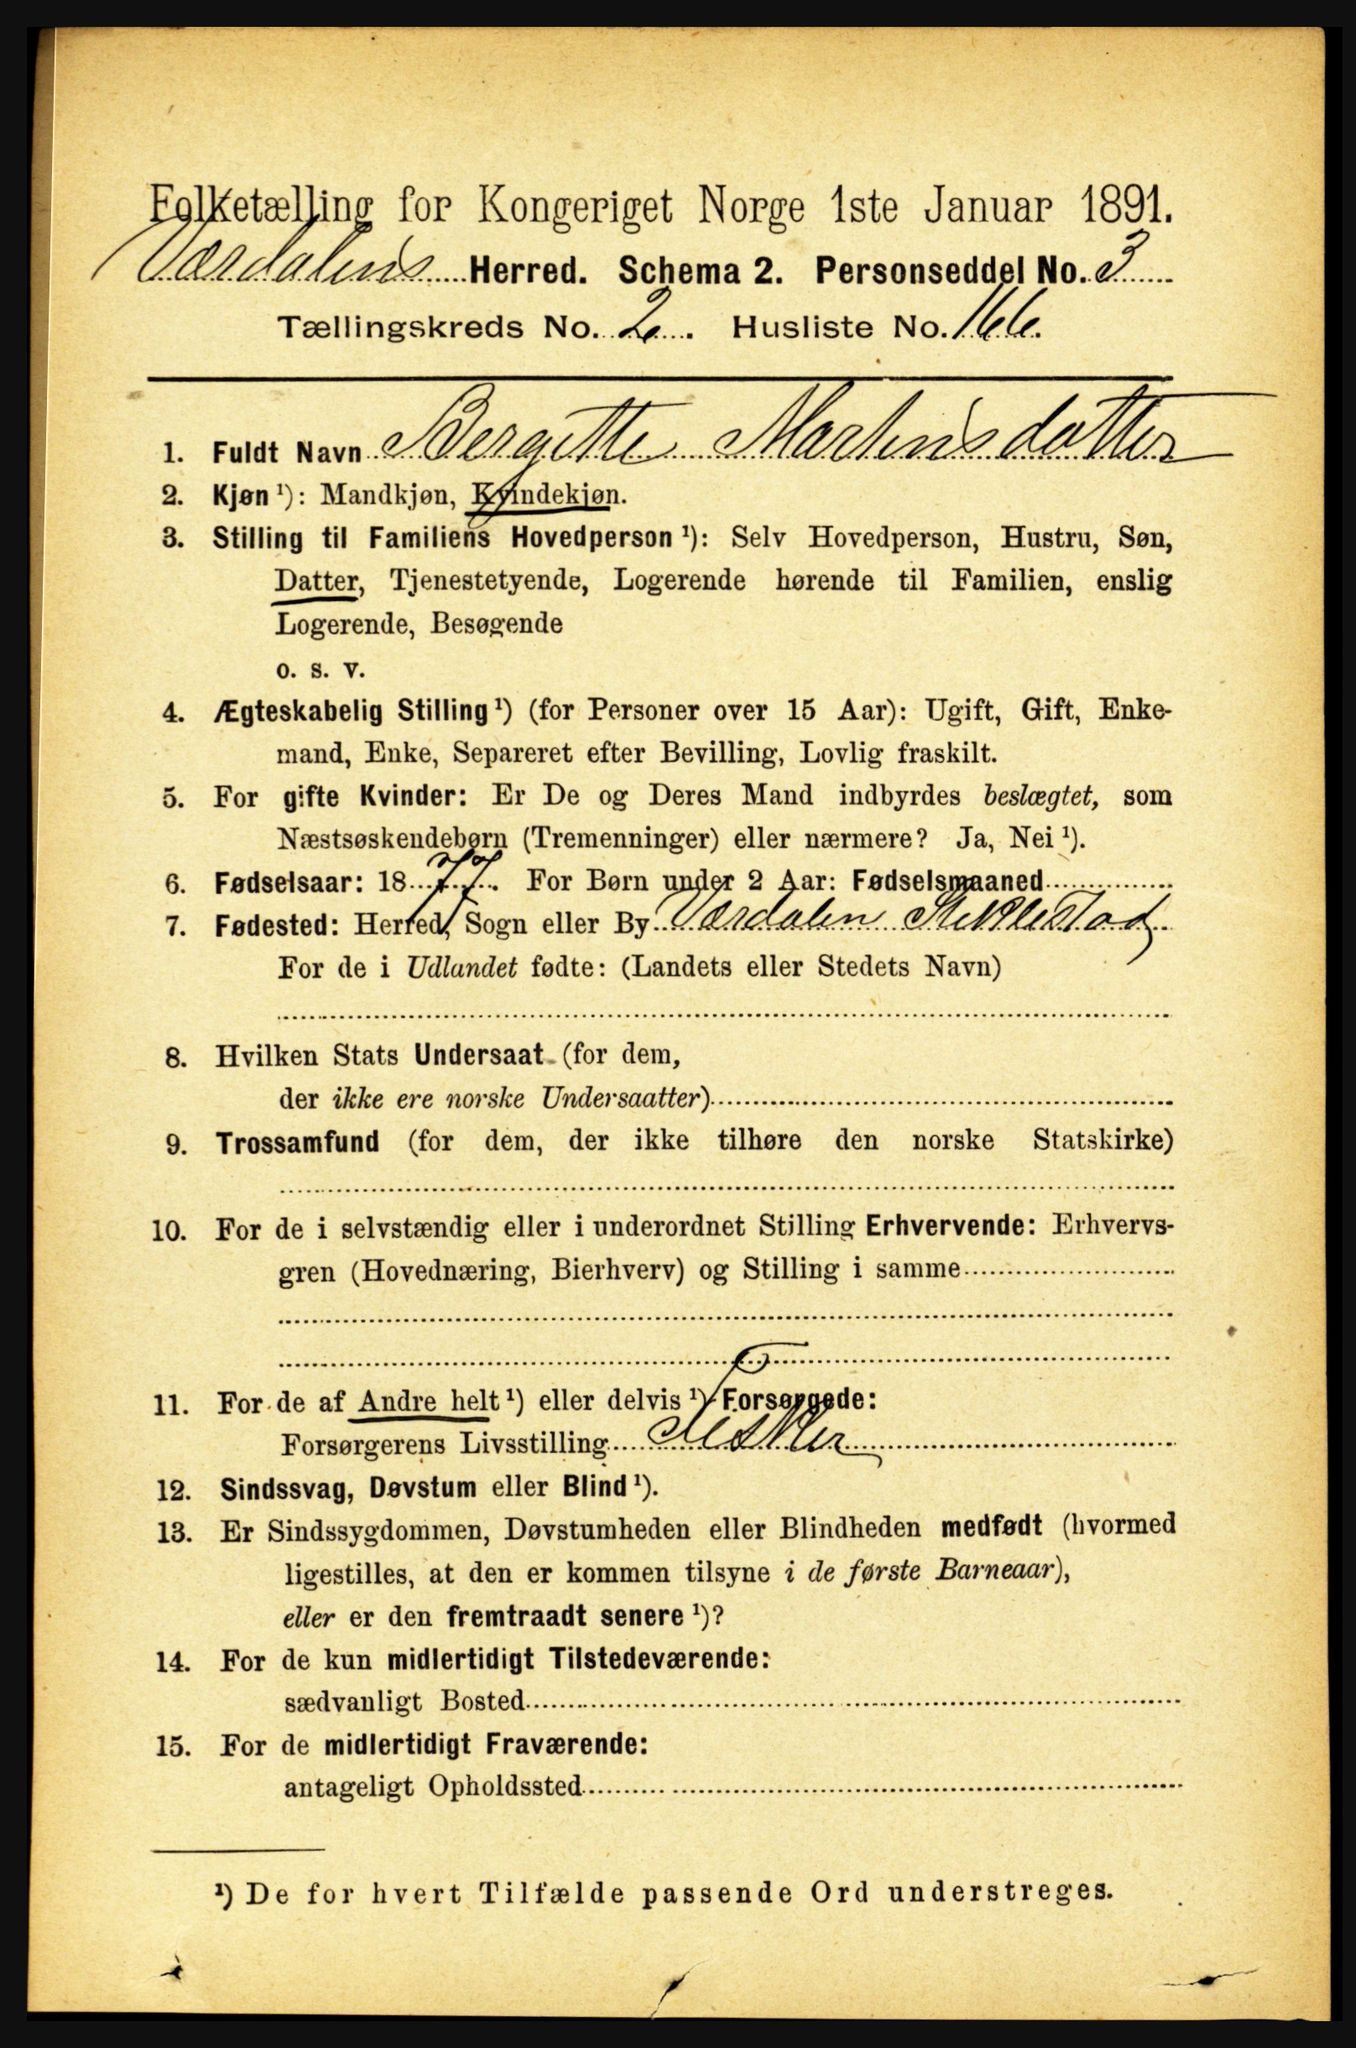 Folketælling for Kongeriget Norge 1ste Januar 1891.
Værdalens Herred. Schema 2. Personseddel No. 3
Tællingskreds No. 2. Husliste No. 166.
1. Fuldt Navn Bergitte Martinsdatter
2. Kjøn ¹): Mandkjøn, Kvindekjøn.
3. Stilling til Familiens Hovedperson ¹): Selv Hovedperson, Hustru, Søn,
Datter, Tjenestetyende, Logerende hørende til Familien, enslig
Logerende, Besøgende
o. s. v.
4. Ægteskabelig Stilling ¹) (for Personer over 15 Aar): Ugift, Gift, Enke-
mand, Enke, Separeret efter Bevilling, Lovlig fraskilt.
5. For gifte Kvinder: Er De og Deres Mand indbyrdes beslægtet, som
Næstsøskendebørn (Tremenninger) eller nærmere? Ja, Nei ¹).
6. Fødselsaar: 1877. For Børn under 2 Aar: Fødselsmaaned
7. Fødested: Herred, Sogn eller By Værdalen Stiklestad
For de i Udlandet fødte: (Landets eller Stedets Navn)
8. Hvilken Stats Undersaat (for dem,
der ikke ere norske Undersaatter)
9. Trossamfund (for dem, der ikke tilhøre den norske Statskirke)
10. For de i selvstændig eller i underordnet Stilling Erhvervende: Erhvervs-
gren (Hovednæring, Bierhverv) og Stilling i samme
11. For de af Andre helt ¹) eller delvis ¹) Forsørgede:
Forsørgerens Livsstilling Fisker
12. Sindssvag, Døvstum eller Blind ¹).
13. Er Sindssygdommen, Døvstumheden eller Blindheden medfødt (hvormed
ligestilles, at den er kommen tilsyne i de første Barneaar),
eller er den fremtraadt senere ¹)?
14. For de kun midlertidigt Tilstedeværende:
sædvanligt Bosted
15. For de midlertidigt Fraværende:
antageligt Opholdssted
¹) De for hvert Tilfælde passende Ord understreges.